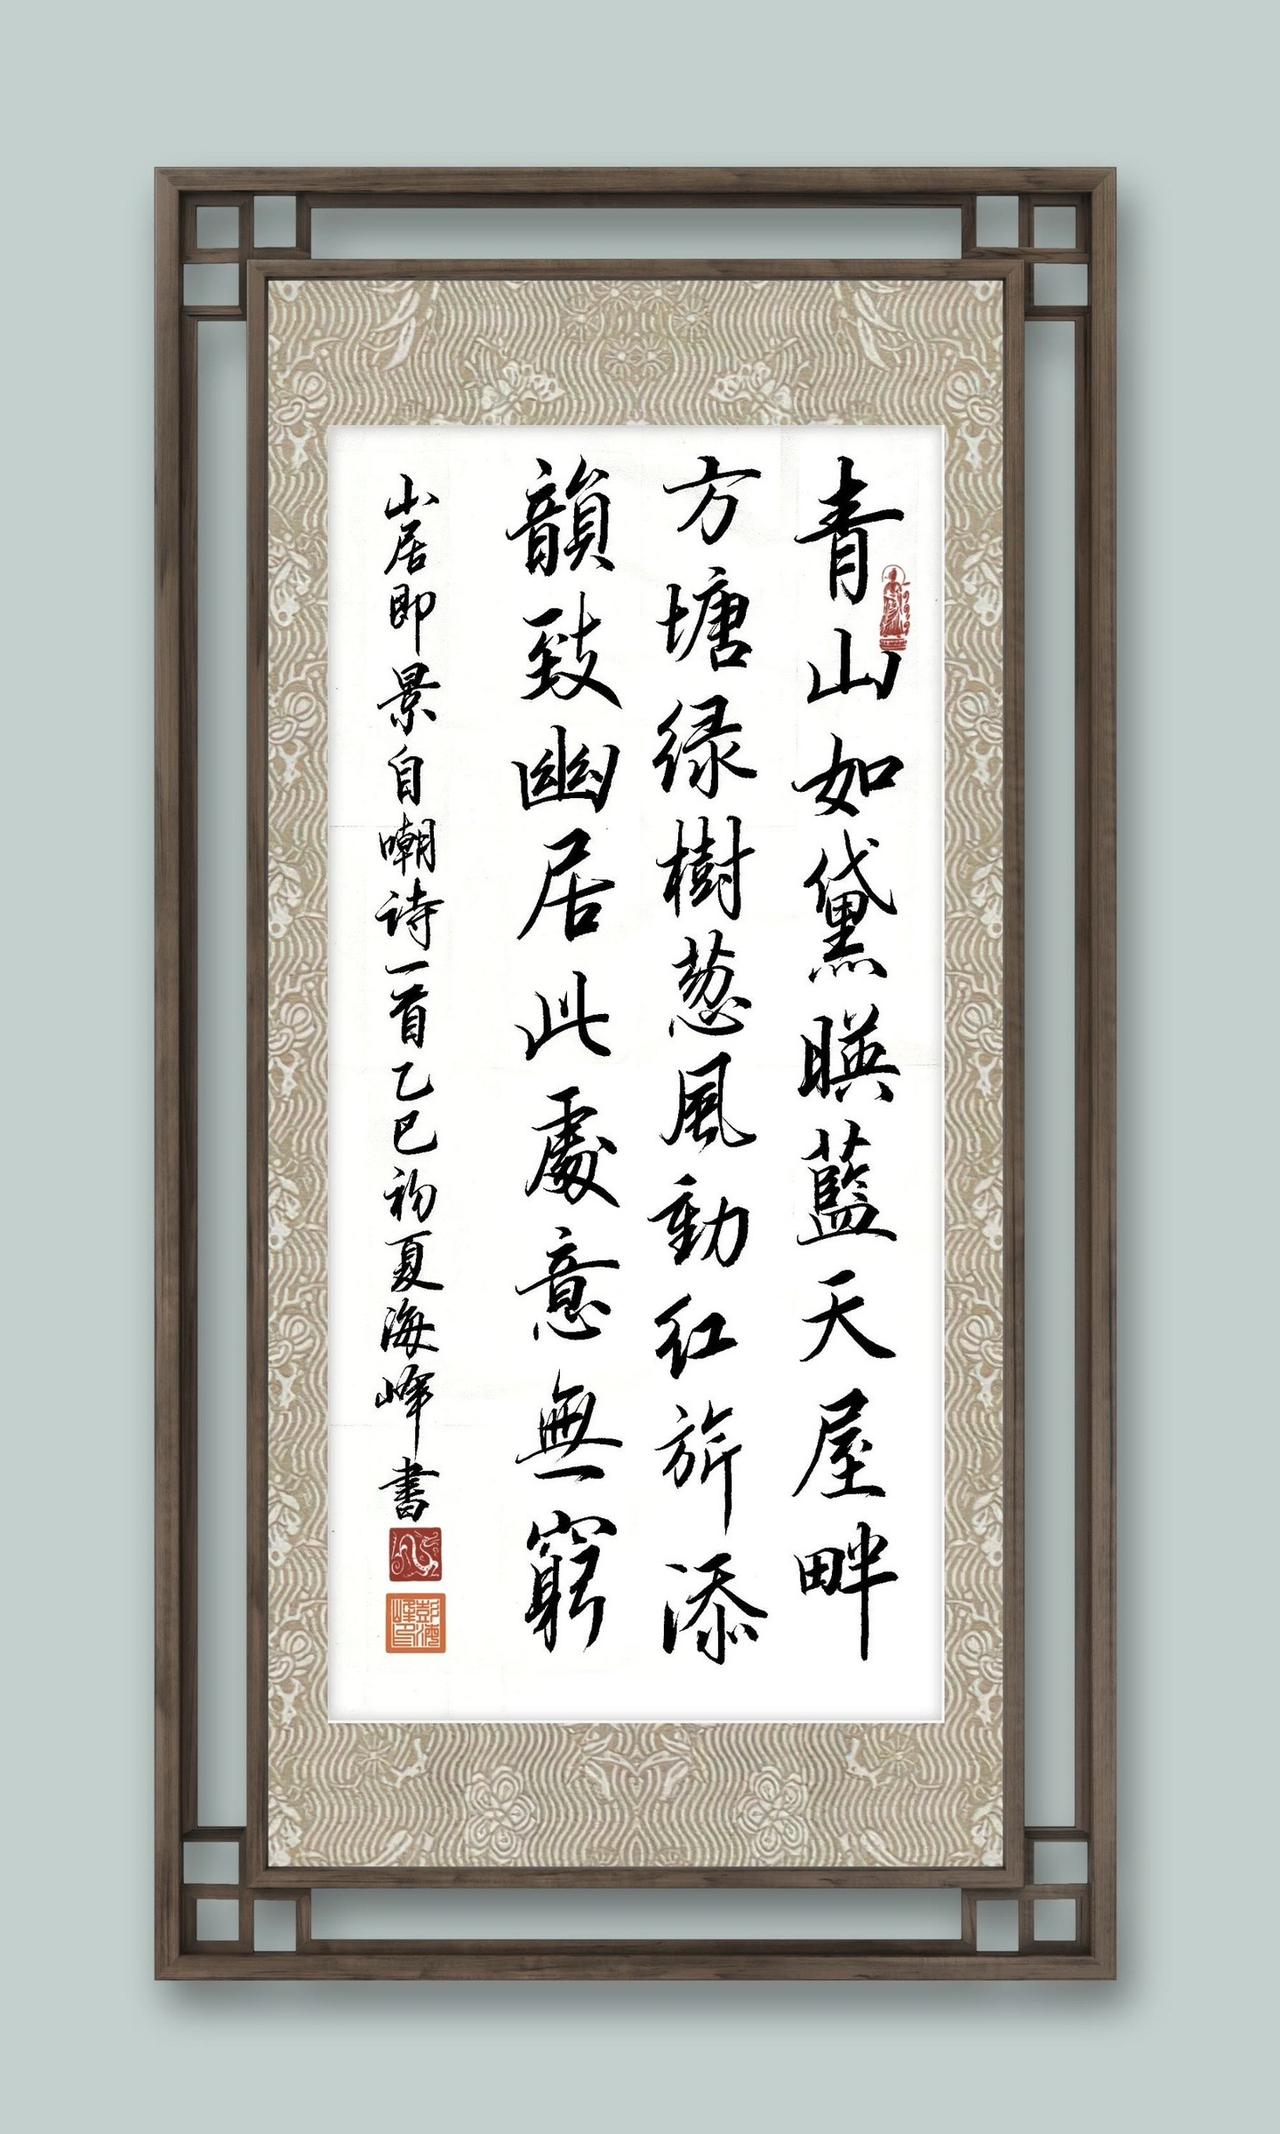 青山如黛暎藍天屋畔
方塘绿樹葱風動红旂添
韻致幽居此處意無窮
山居即景自嘲诗一首乙巳初夏海峰書
彭海峰印